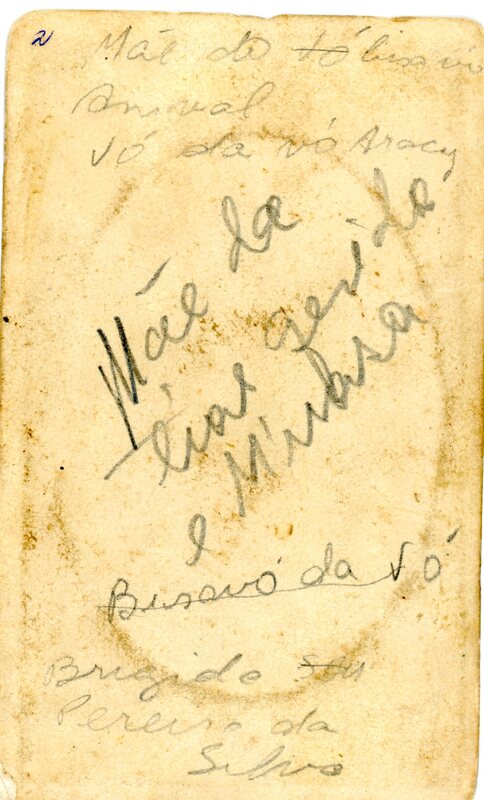 2
Mãe do bisavô
Anoval
Vó da vó Aracy
Mãe da
tias
e
Bisavó da Vó
Brigida
Pereira da
Silva